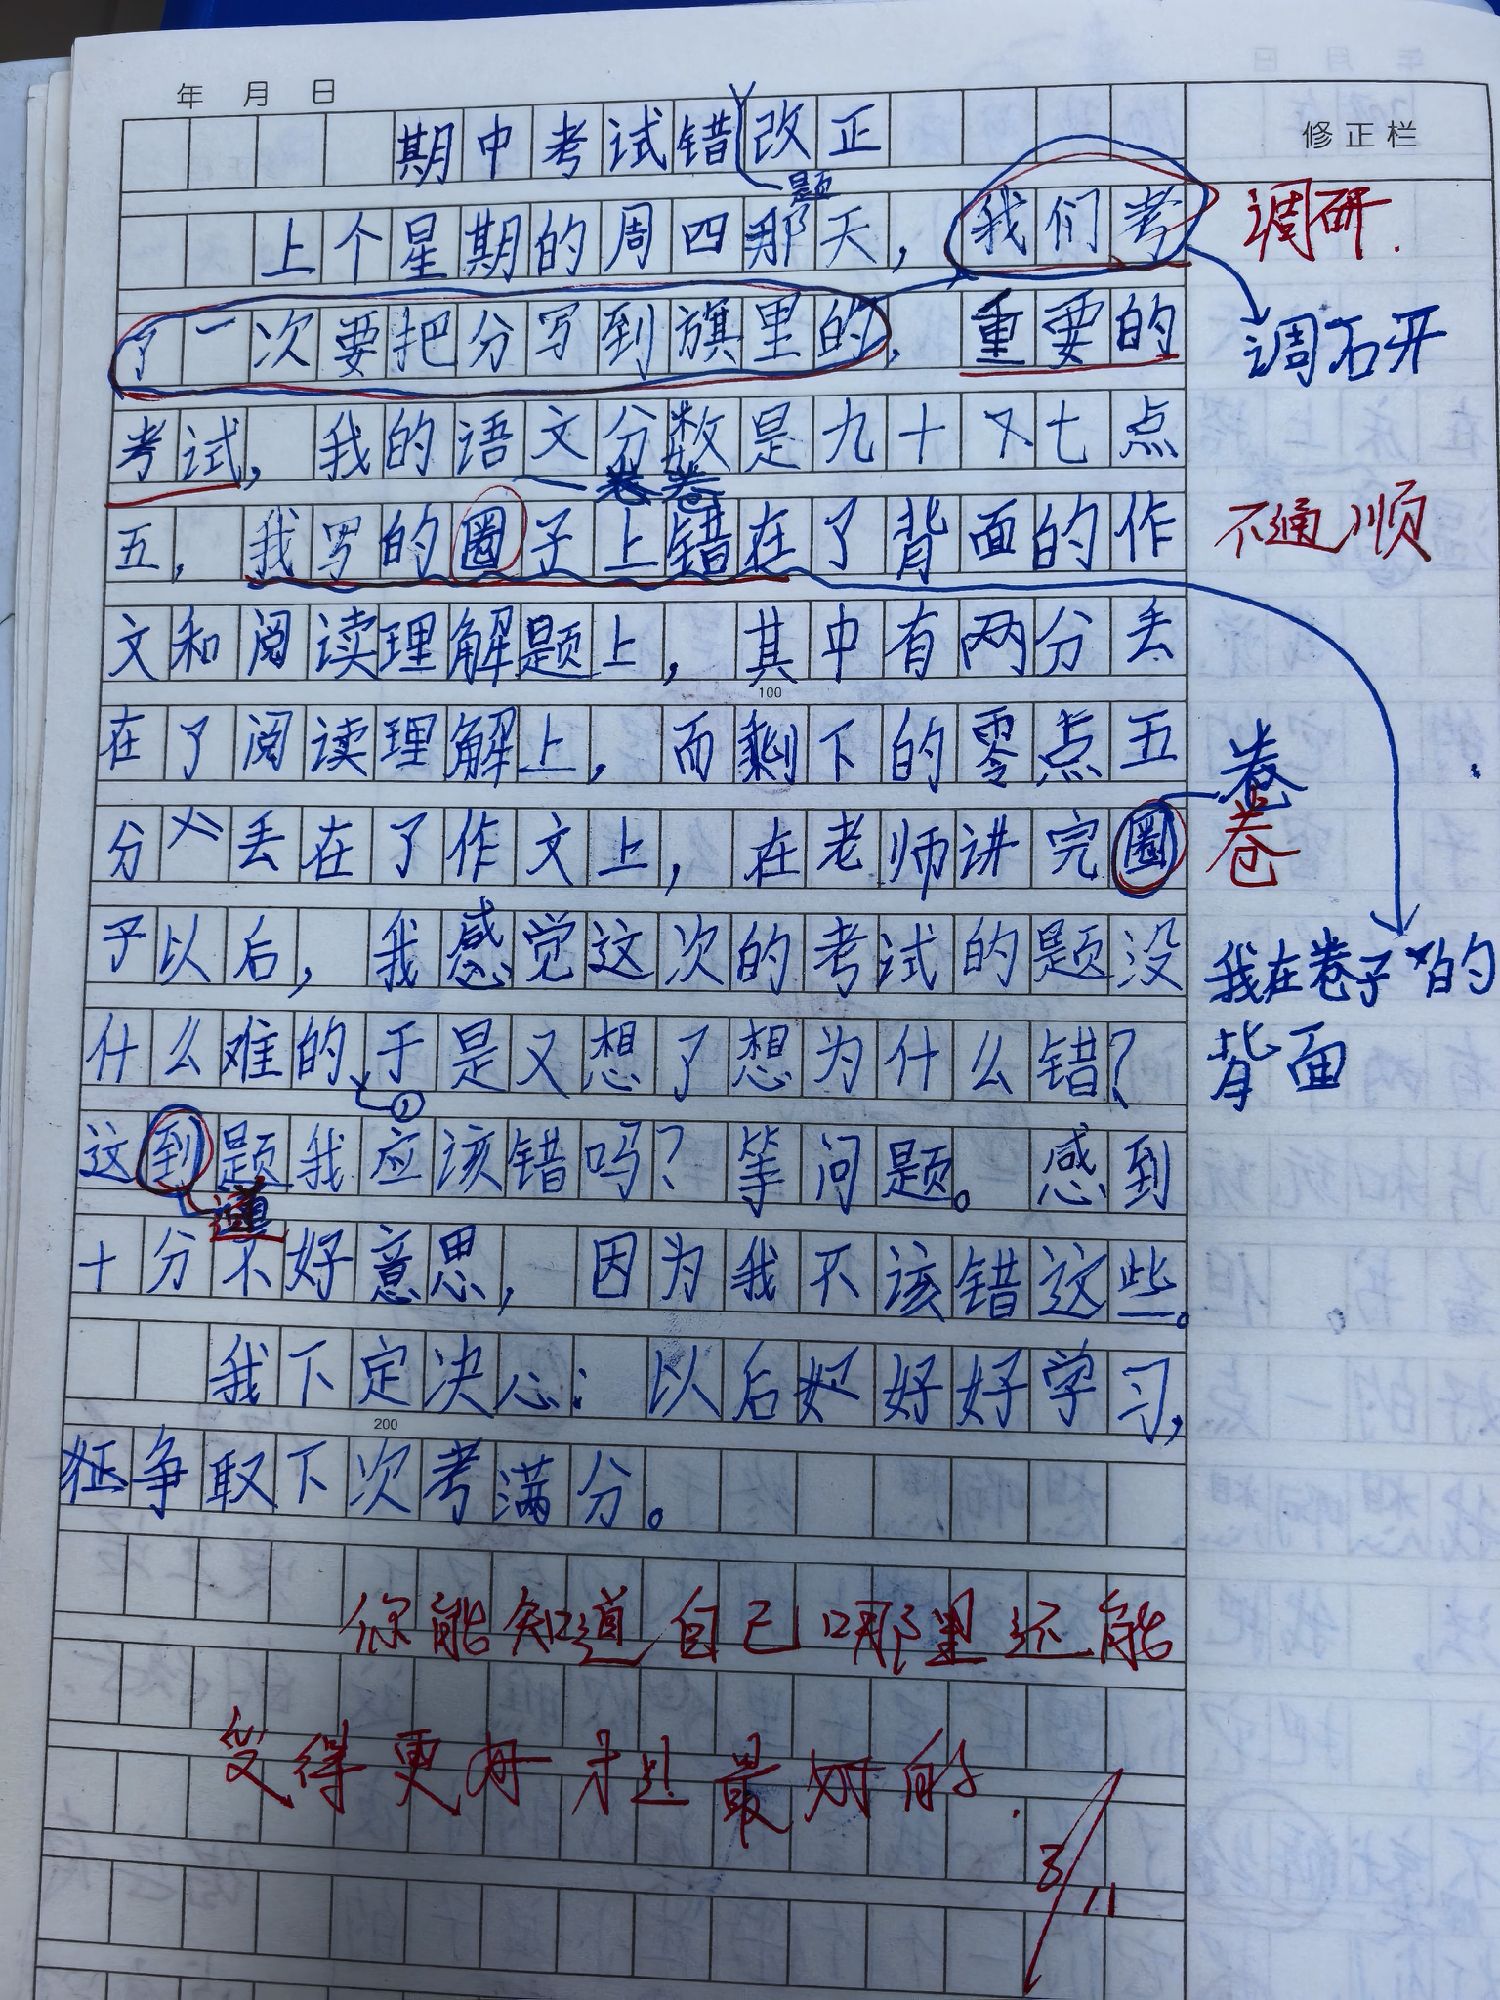 年 月 日
修正栏
期中考试错改正
题
上个星期的周四那天，我们考
调研.
了一次要把分写到旗里的，重要的
调研
考试，我的语文分数是九十七点
卷
五，我写的圈子上错在了背面的作
不通顺
文和阅读理解题上，其中有两分丢
100
在了阅读理解上，而剩下的零点五
卷
分丢在了作文上，在老师讲完圈
卷
子以后，我感觉这次的考试的题没
我在卷子的
什么难的于是又想了想为什么错？
，
背面
这到题我应该错吗？等问题。感到
道
十分不好意思，因为我不该错这些。
我下定决心：以后好好学习，
200
争取下次考满分。
你能知道自己哪里还能
变得更好才是最好的.
3/11